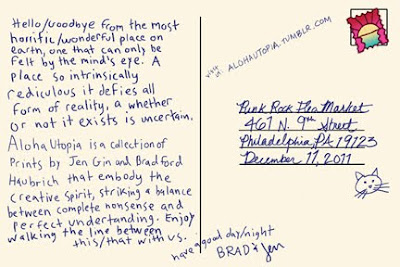 Hello/Goodbye from the most
horrific/wonderful place on
earth, one that can only be
felt by the mind's eye. A
place so intrinsically
rediculous it defies all
form of reality, a whether
or not it exists is uncertain.
Aloha Utopia is a collection of
Prints by Jen Gin and Bradford
Haubrich that embody the
creative Spirit, striking a balance
between complete nonsense and
perfect understanding. Enjoy
walking the line between
this/that with us.
have a good day/night
BRAD & Jen
visit us: ALOHAUTOPIA.TUMBLR.COM
Punk Rock Flea Market
461 N. 9th Street
Philadelphia, PA 19123
December 17, 2011